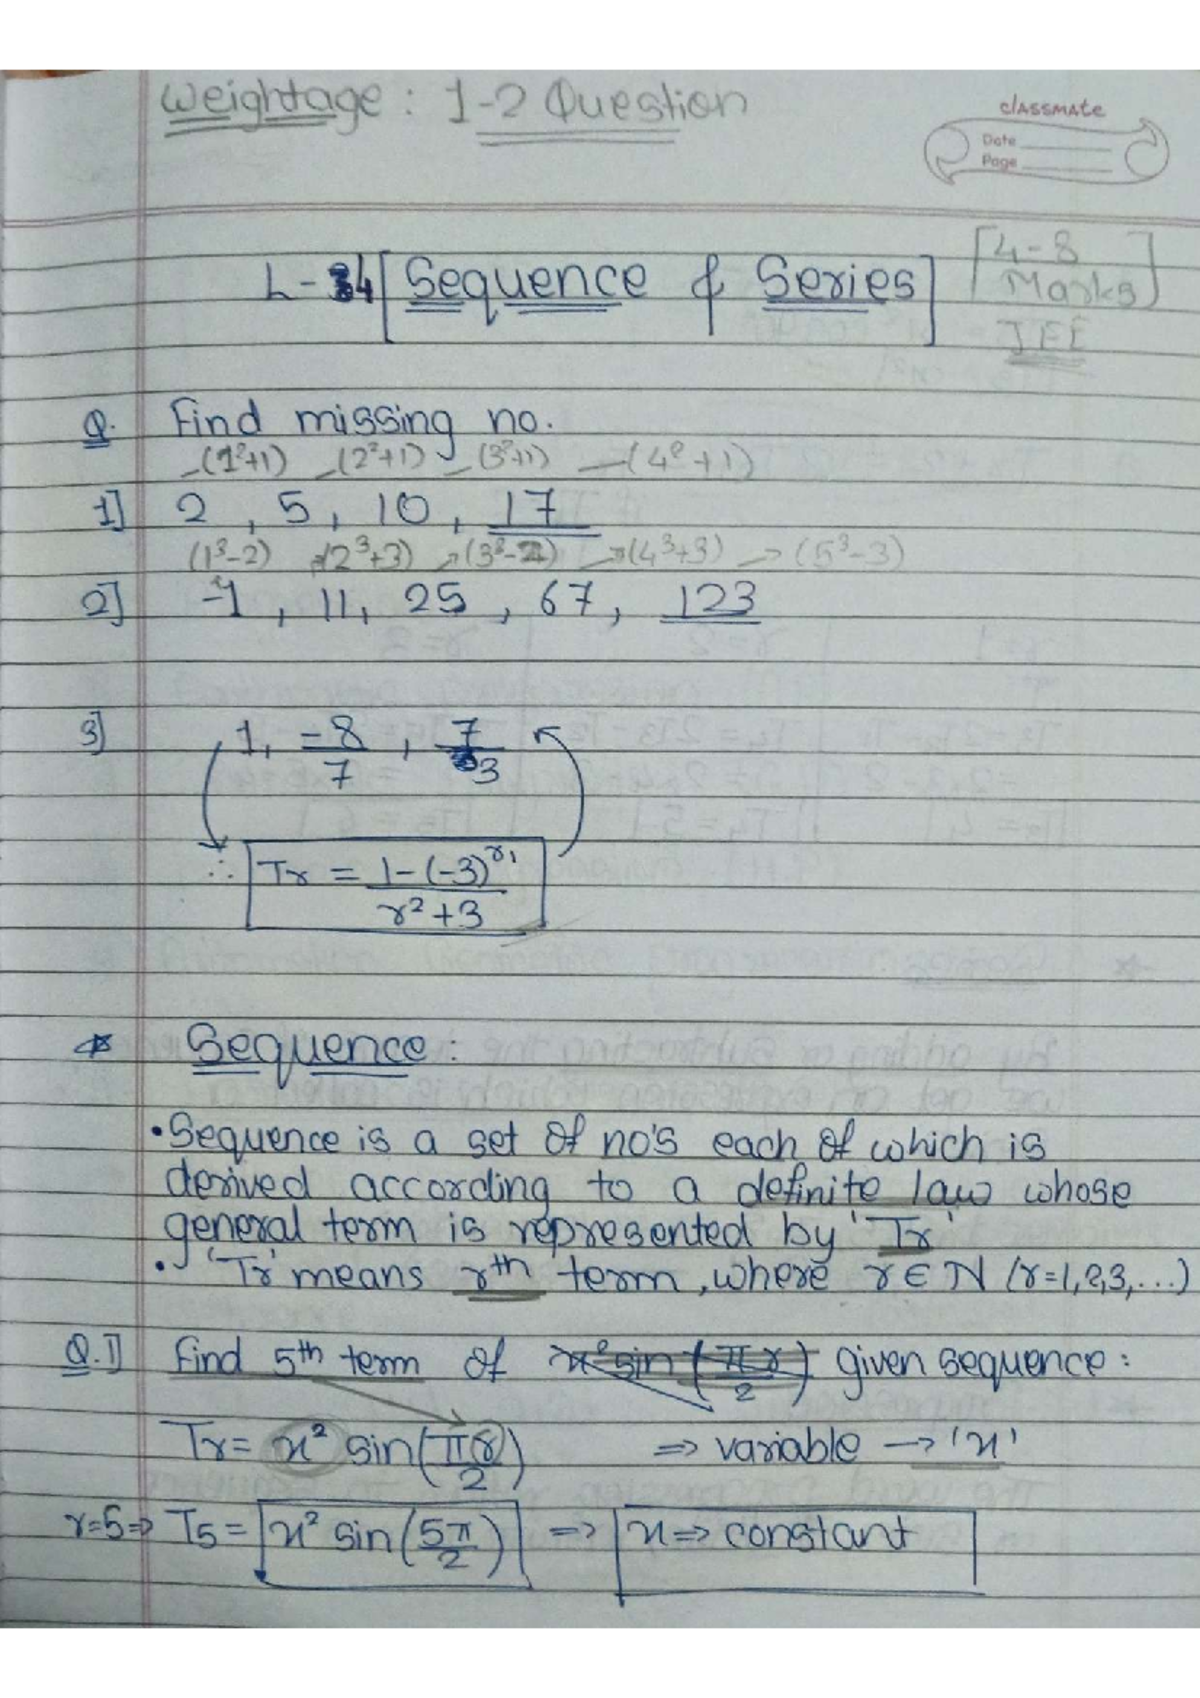 Weightage : 1-2 Question
classmate
Date
Page
L-34 [Sequence & Series]
[4-8 Marks]
JEE
Q. Find missing no.
(1²+1) (2²+1) (3²+1) (4²+1)
1] 2, 5, 10, 17
(1³-2) (2³+3) → (3³-2) → (4³+3) → (5³-3)
2] -1, 11, 25, 67, 123
3] 1, -8/7, 7/3
∴ Tr = 1-(-3)^r / r²+3
* Sequence :
• Sequence is a set of no's each of which is
derived according to a definite law whose
general term is represented by 'Tr'
• 'Tr' means rth term, where r ∈ N (r=1,2,3,...)
Q.1] Find 5th term of x² sin(πr/2) given sequence :
Tr = x² sin(πr/2) ⇒ variable → 'x'
r=5⇒ T5 = x² sin(5π/2) ⇒ x ⇒ constant